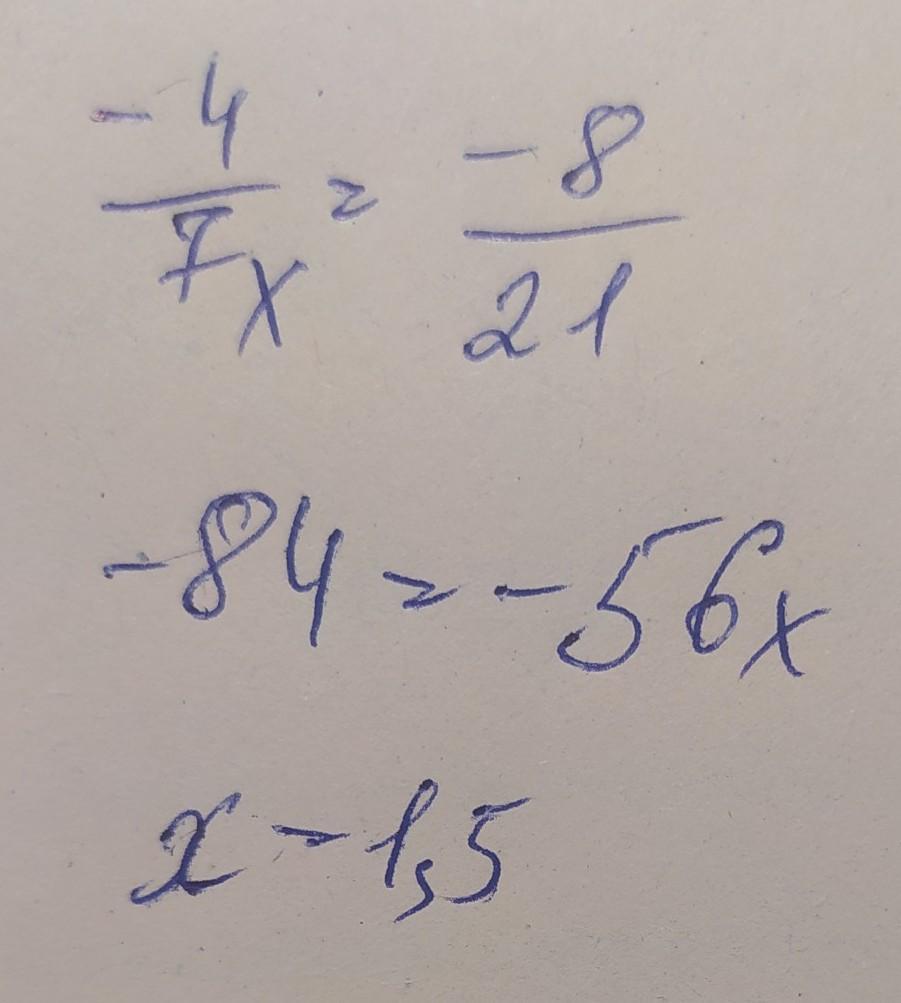 -4/7x = -8/21
-84 = -56x
x = 1,5